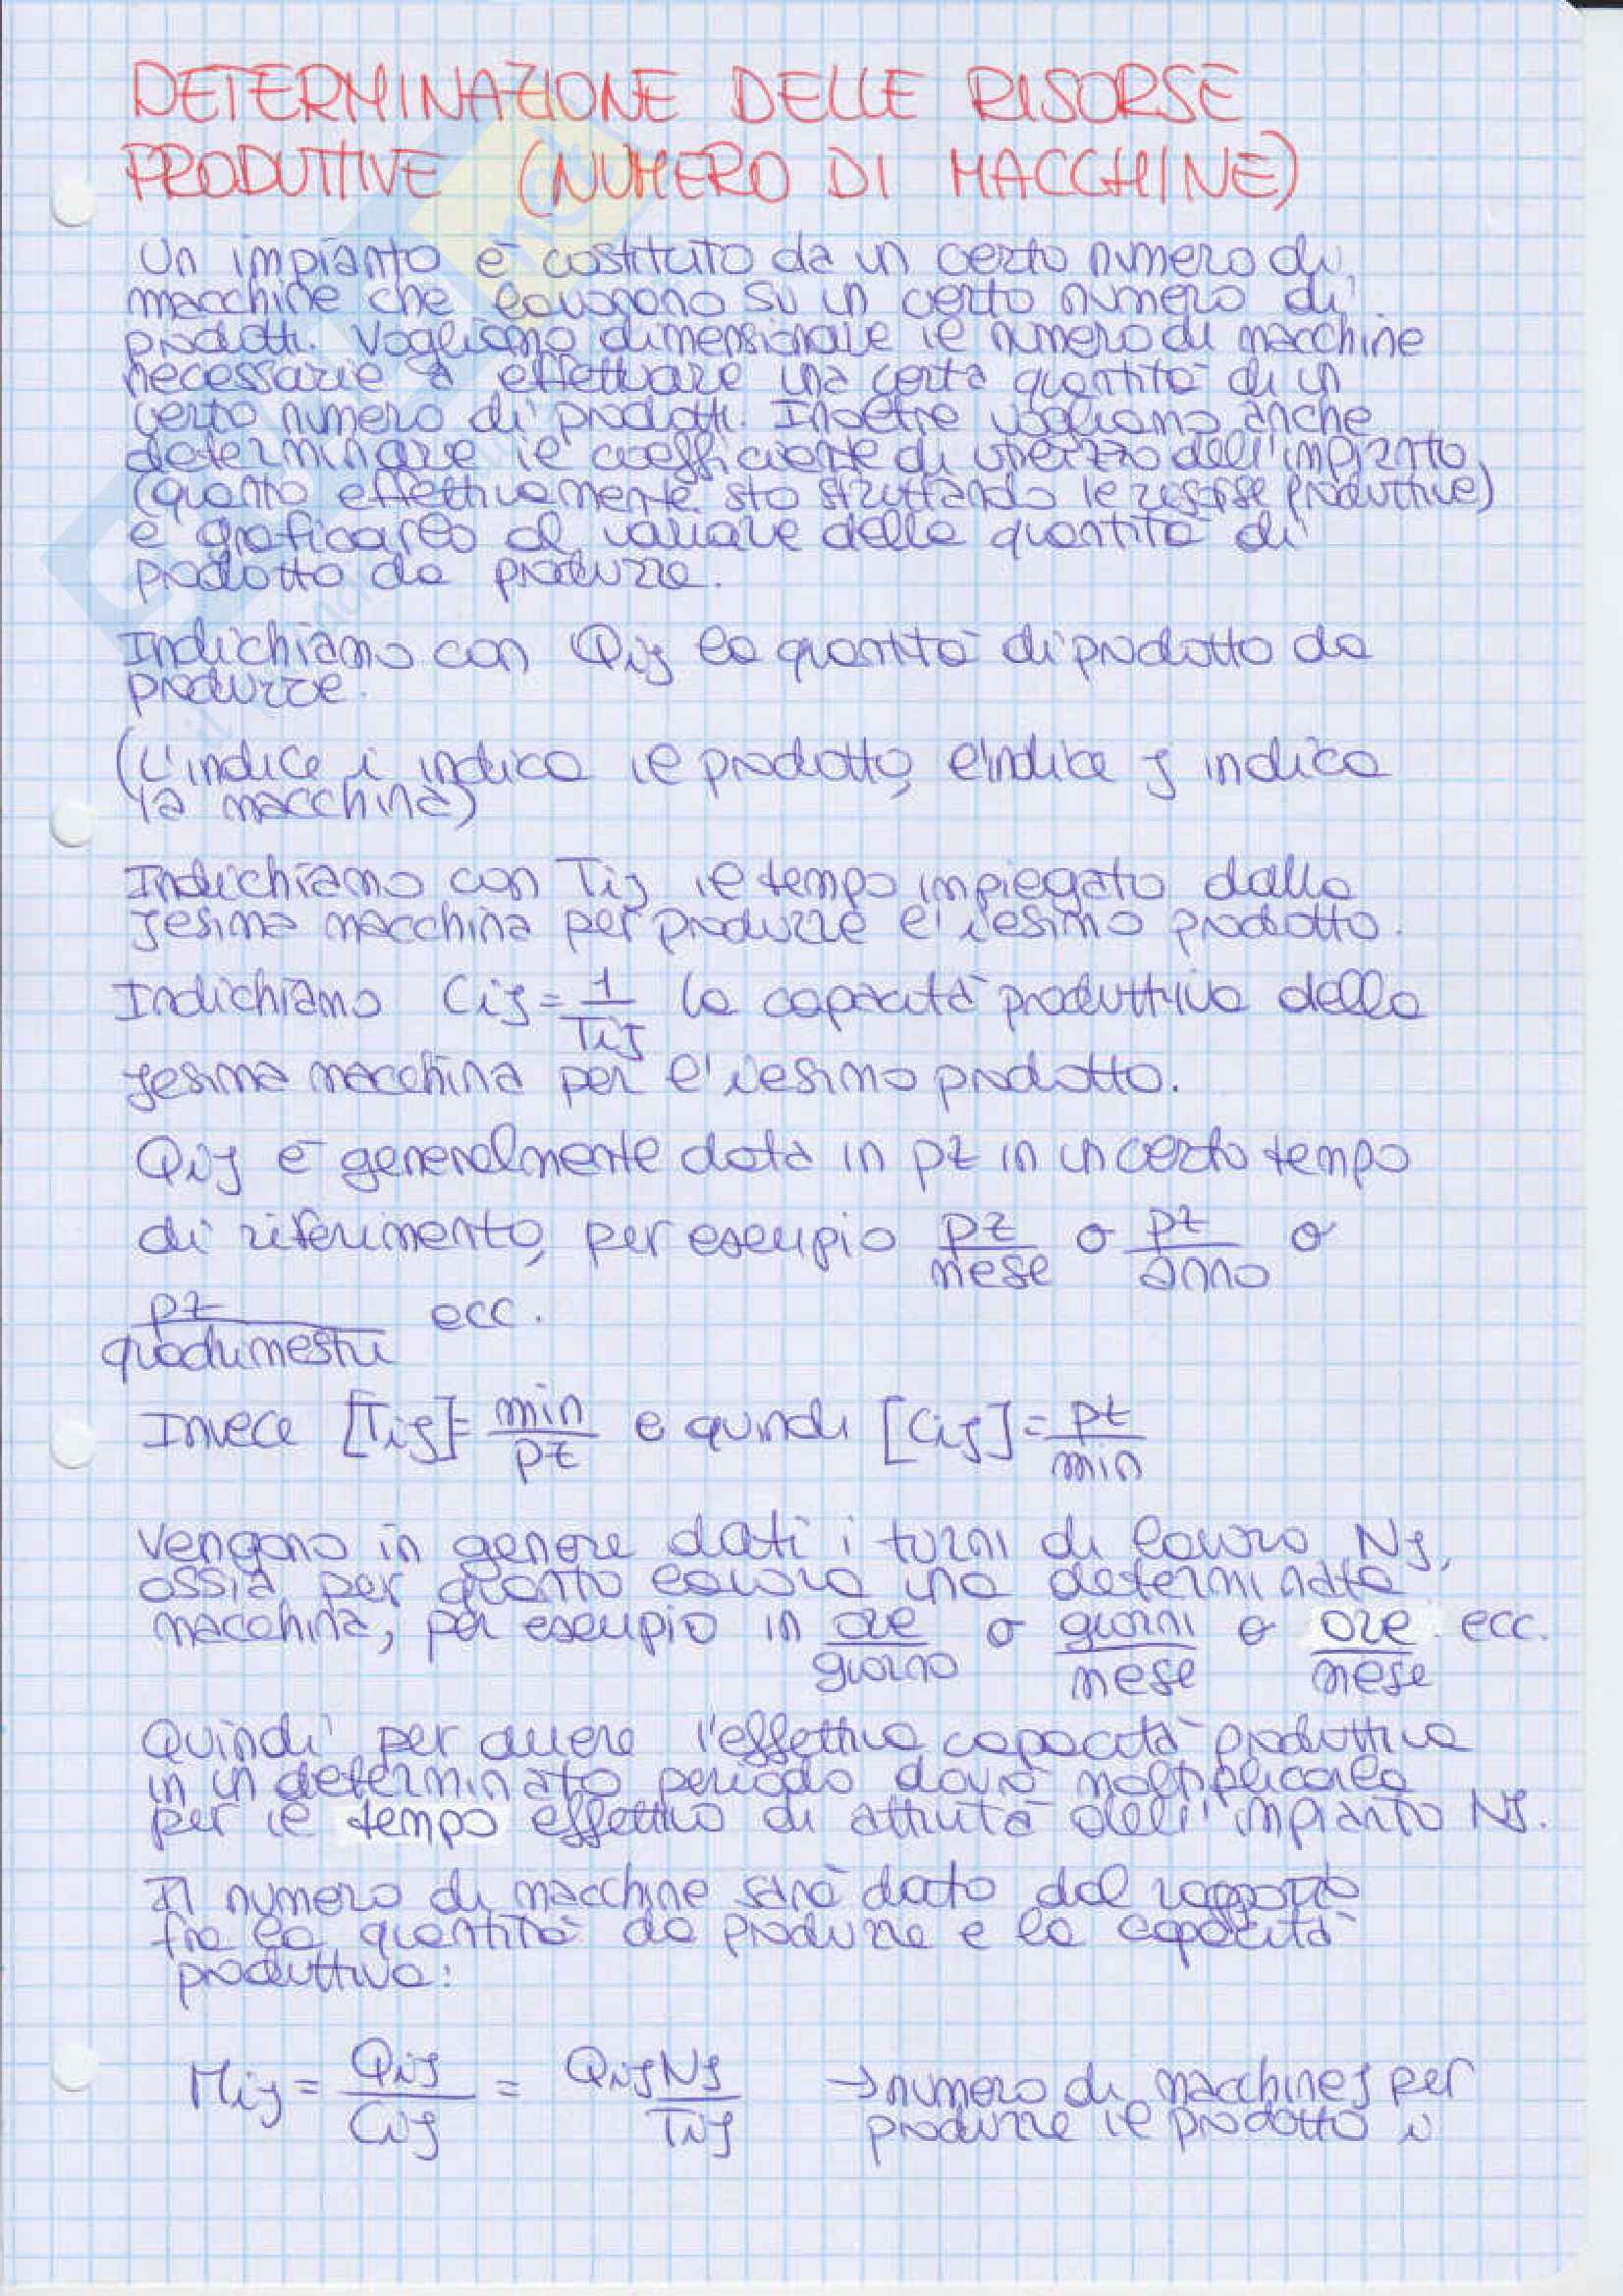 DETERMINAZIONE DELLE RISORSE
PRODUTTIVE (NUMERO DI MACCHINE)
Un impianto è costituito da un certo numero di
macchine che lavorano su un certo numero di
prodotti. Vogliamo dimensionare il numero di macchine
necessarie a effettuare una certa quantità di un
certo numero di prodotti. Inoltre vogliamo anche
determinare il coefficiente di utilizzo dell'impianto
(quanto effettivamente sto sfruttando le risorse produttive)
e graficarlo al variare della quantità di
prodotto da produrre.
Indichiamo con Qij la quantità di prodotto da
produrre.
(L'indice i indica il prodotto, l'indice j indica
la macchina)
Indichiamo con Tij il tempo impiegato dalla
jesima macchina per produrre l'iesimo prodotto.
Indichiamo Cij = 1/Tij la capacità produttiva della
jesima macchina per l'iesimo prodotto.
Qij è generalmente data in pz in un certo tempo
di riferimento, per esempio pz/mese o pz/anno o
pz/quadrimestri ecc.
Invece [Tij] = min/pz e quindi [Cij] = pz/min
Vengono in genere dati i turni di lavoro Nj,
ossia per quanto lavora una determinata
macchina, per esempio in ore/giorno o giorni/mese o ore/mese ecc.
Quindi per avere l'effettiva capacità produttiva
in un determinato periodo dovrò moltiplicarla
per il tempo effettivo di attività dell'impianto Nj.
Il numero di macchine sarà dato dal rapporto
fra la quantità da produrre e la capacità
produttiva:
Mij = Qij/Cij = QijNj/Tij → numero di macchine j per
produrre il prodotto i